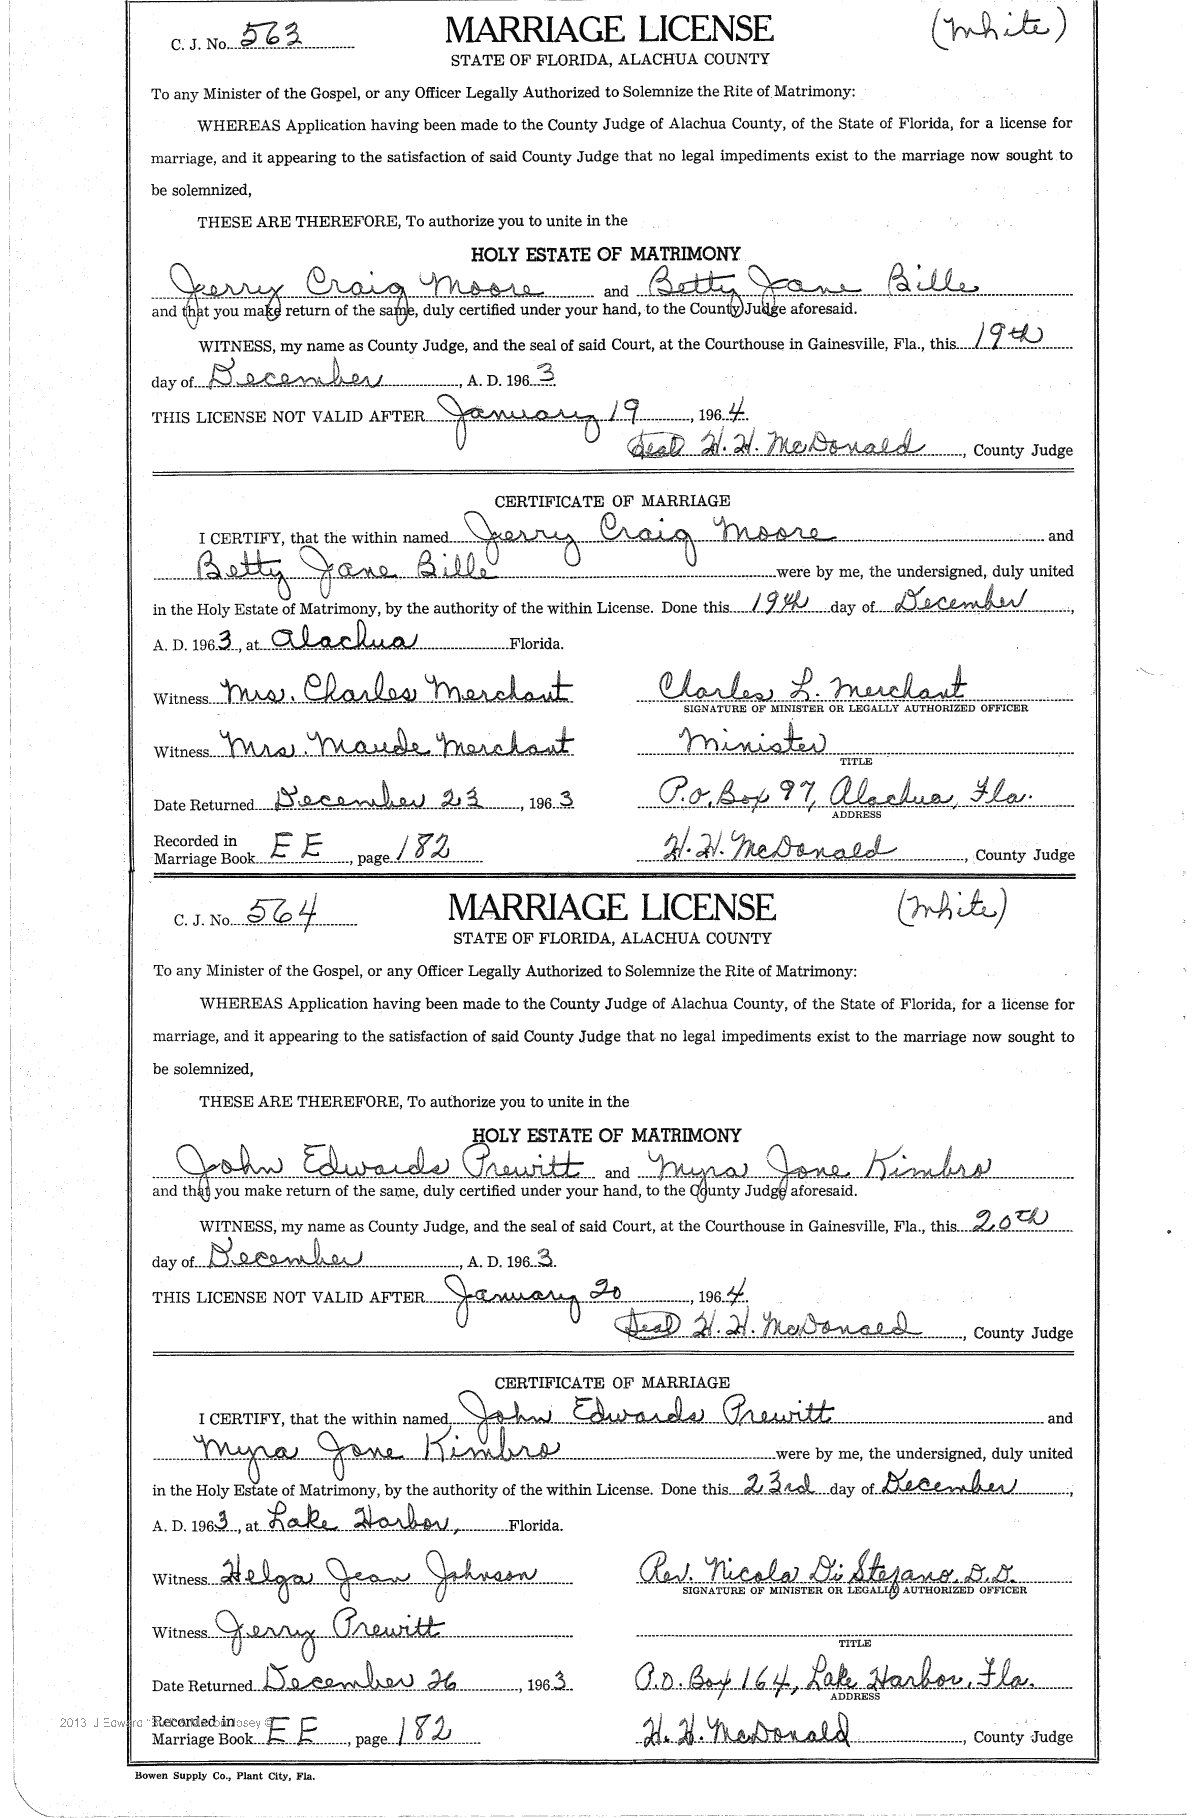 C. J. No. 563 MARRIAGE LICENSE (White)
STATE OF FLORIDA, ALACHUA COUNTY
To any Minister of the Gospel, or any Officer Legally Authorized to Solemnize the Rite of Matrimony:
WHEREAS Application having been made to the County Judge of Alachua County, of the State of Florida, for a license for
marriage, and it appearing to the satisfaction of said County Judge that no legal impediments exist to the marriage now sought to
be solemnized,
THESE ARE THEREFORE, To authorize you to unite in the
HOLY ESTATE OF MATRIMONY
Jerry Craig Moore and Betty Jane Bille
and that you make return of the same, duly certified under your hand, to the County Judge aforesaid.
WITNESS, my name as County Judge, and the seal of said Court, at the Courthouse in Gainesville, Fla., this 19th
day of December, A. D. 1963
THIS LICENSE NOT VALID AFTER January 19, 1964
Seal H. H. McDonald, County Judge
CERTIFICATE OF MARRIAGE
I CERTIFY, that the within named Jerry Craig Moore and
Betty Jane Bille were by me, the undersigned, duly united
in the Holy Estate of Matrimony, by the authority of the within License. Done this 19th day of December,
A. D. 1963, at Alachua Florida.
Witness Mrs. Charles Merchant Charles L. Merchant
SIGNATURE OF MINISTER OR LEGALLY AUTHORIZED OFFICER
Witness Mrs. Maude Merchant Minister
TITLE
Date Returned December 23, 1963 P.O. Box 97, Alachua, Fla.
ADDRESS
Recorded in
Marriage Book EE, page 182 H. H. McDonald, County Judge
C. J. No. 564 MARRIAGE LICENSE (White)
STATE OF FLORIDA, ALACHUA COUNTY
To any Minister of the Gospel, or any Officer Legally Authorized to Solemnize the Rite of Matrimony:
WHEREAS Application having been made to the County Judge of Alachua County, of the State of Florida, for a license for
marriage, and it appearing to the satisfaction of said County Judge that no legal impediments exist to the marriage now sought to
be solemnized,
THESE ARE THEREFORE, To authorize you to unite in the
HOLY ESTATE OF MATRIMONY
John Edwards Prewitt and Myra Jone Kimbro
and that you make return of the same, duly certified under your hand, to the County Judge aforesaid.
WITNESS, my name as County Judge, and the seal of said Court, at the Courthouse in Gainesville, Fla., this 20th
day of December, A. D. 1963.
THIS LICENSE NOT VALID AFTER January 20, 1964
Seal H. H. McDonald, County Judge
CERTIFICATE OF MARRIAGE
I CERTIFY, that the within named John Edwards Prewitt and
Myra Jone Kimbro were by me, the undersigned, duly united
in the Holy Estate of Matrimony, by the authority of the within License. Done this 23rd day of December,
A. D. 1963, at Lake Harbor, Florida.
Witness Helga Jean Johnson Rev. Nicola Di Stefano. D.D.
SIGNATURE OF MINISTER OR LEGALLY AUTHORIZED OFFICER
Witness Jerry Prewitt
TITLE
Date Returned December 26, 1963 P.O. Box 164, Lake Harbor, Fla.
ADDRESS
2013 J Edward
Recorded in
Marriage Book EE, page 182 H. H. McDonald, County Judge
Bowen Supply Co., Plant City, Fla.